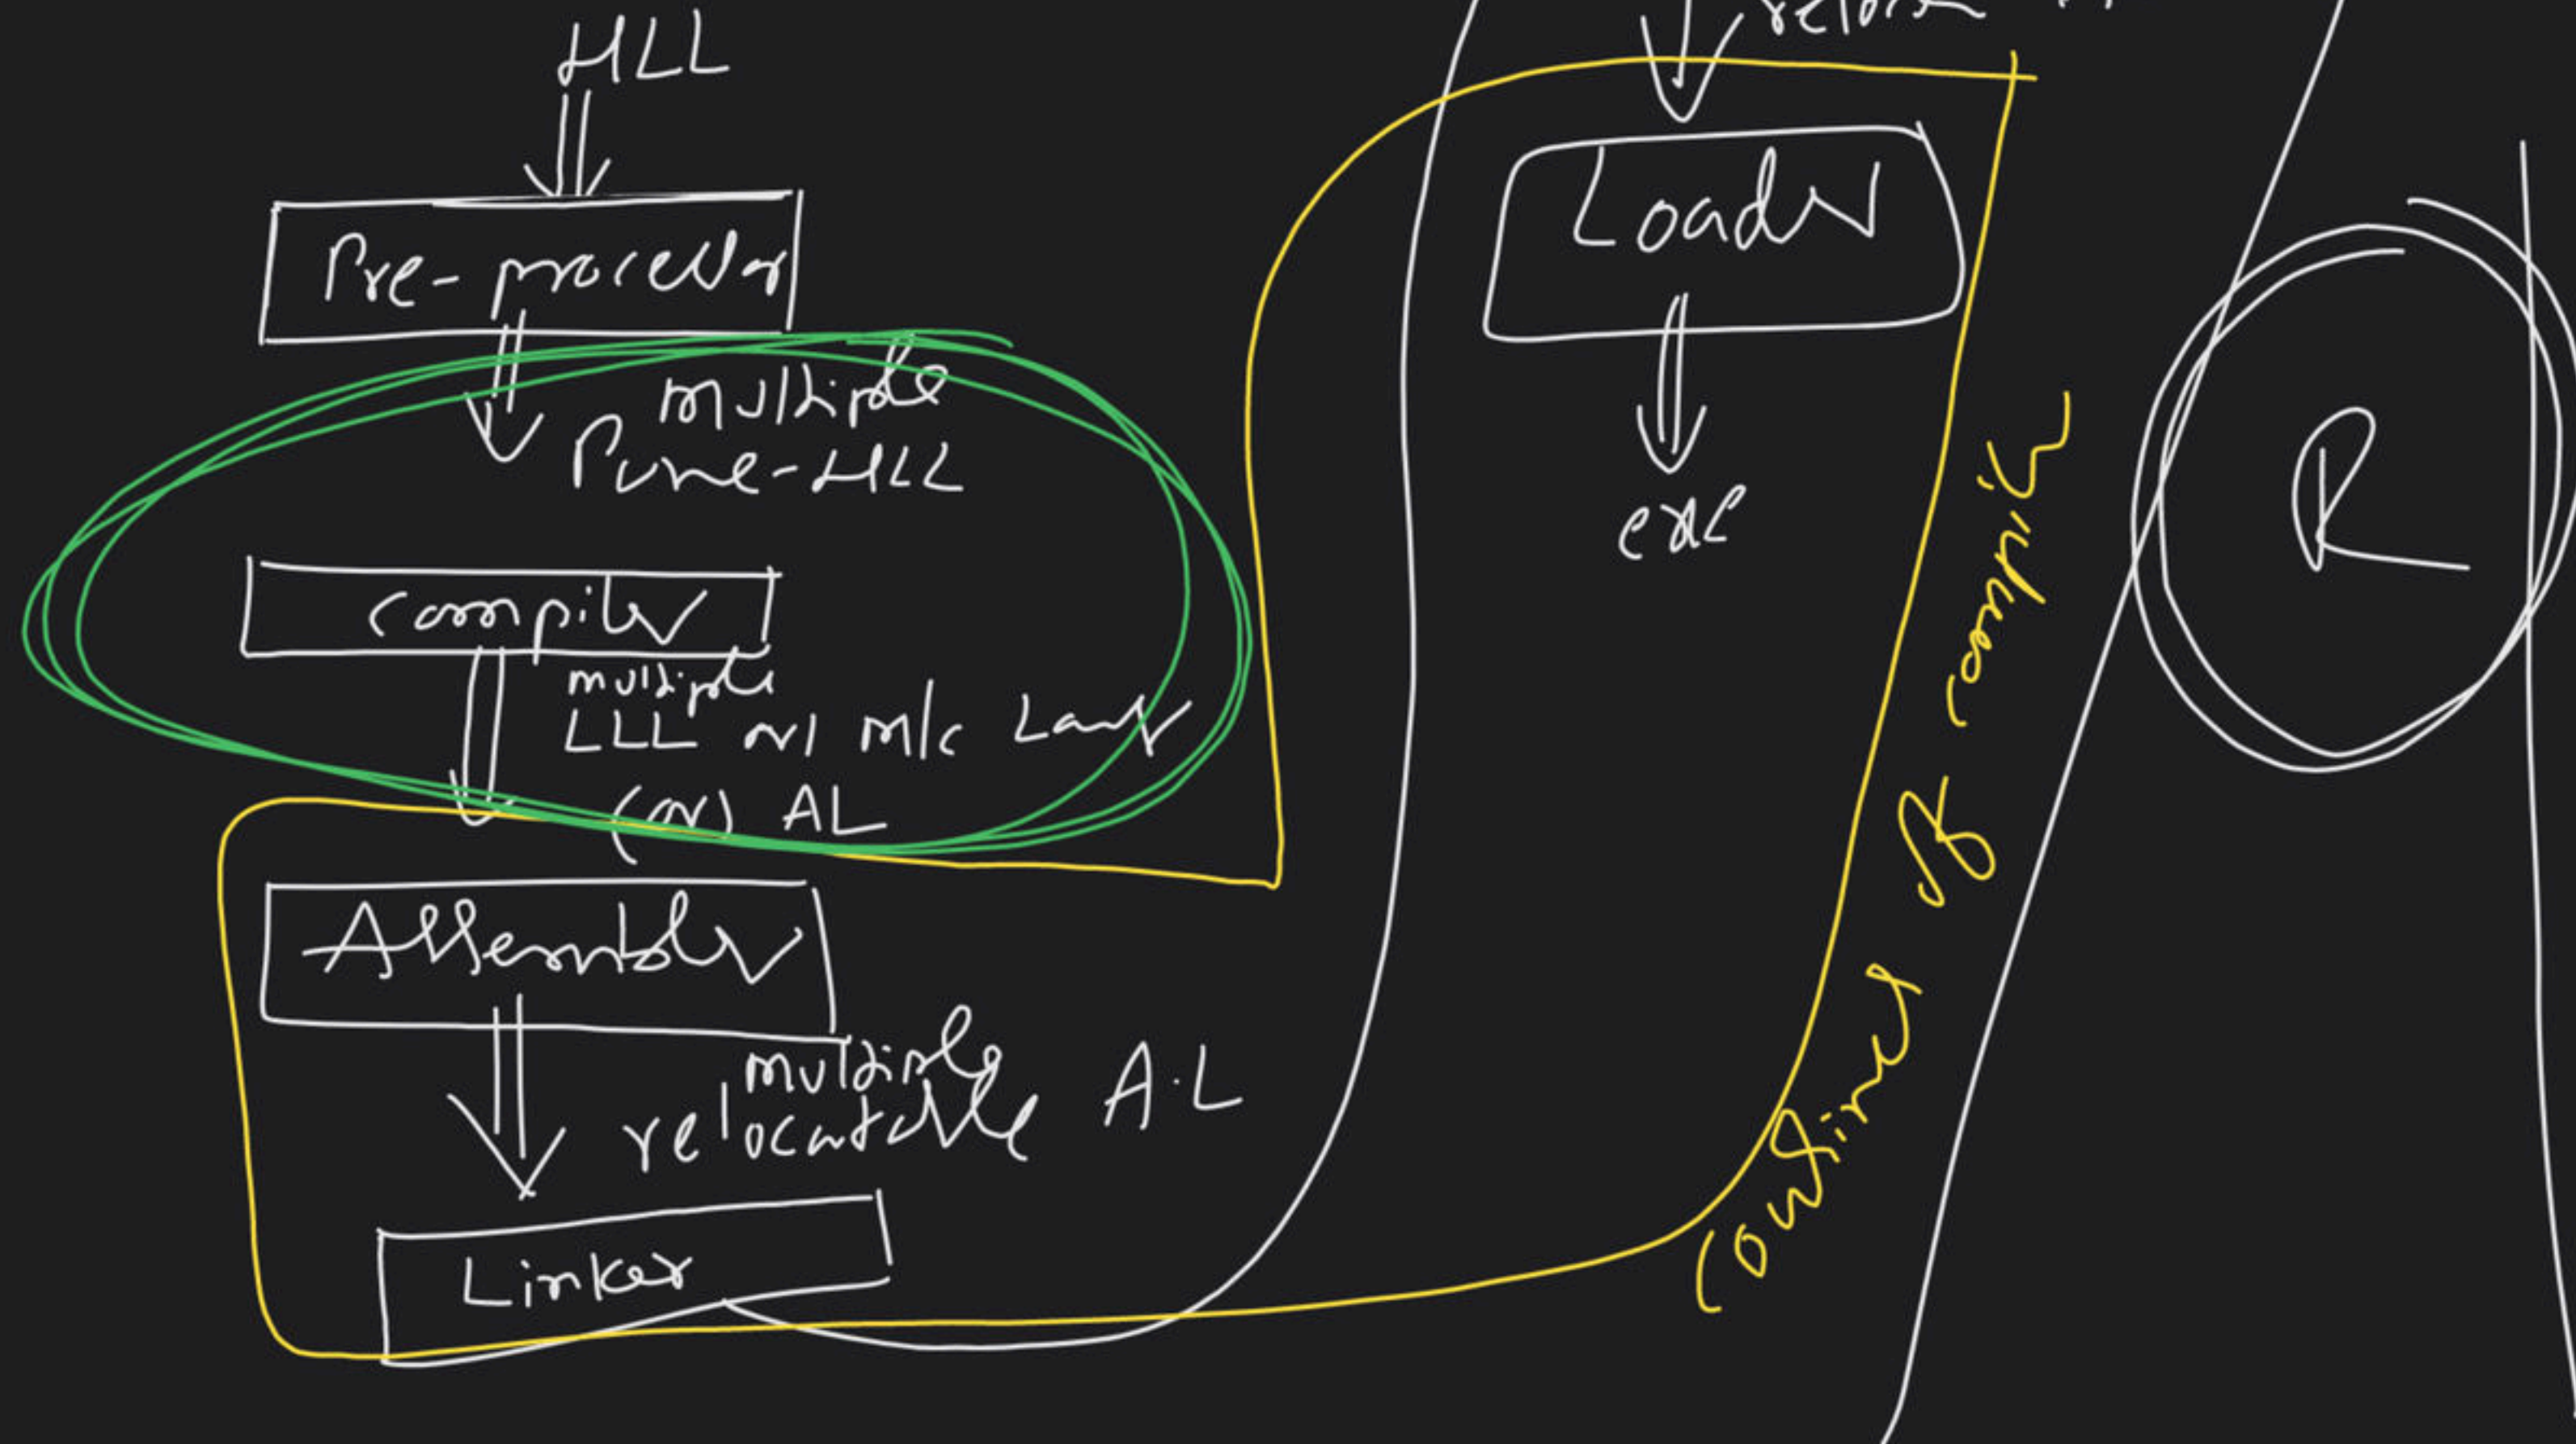 HLL
Pre-processor
multiple
Pure-HLL
compiler
multiple
LLL or m/c Lang
(or) AL
Assembler
multiple
relocatable A.L
Linker
Loader
exe
cousines of compiler
R